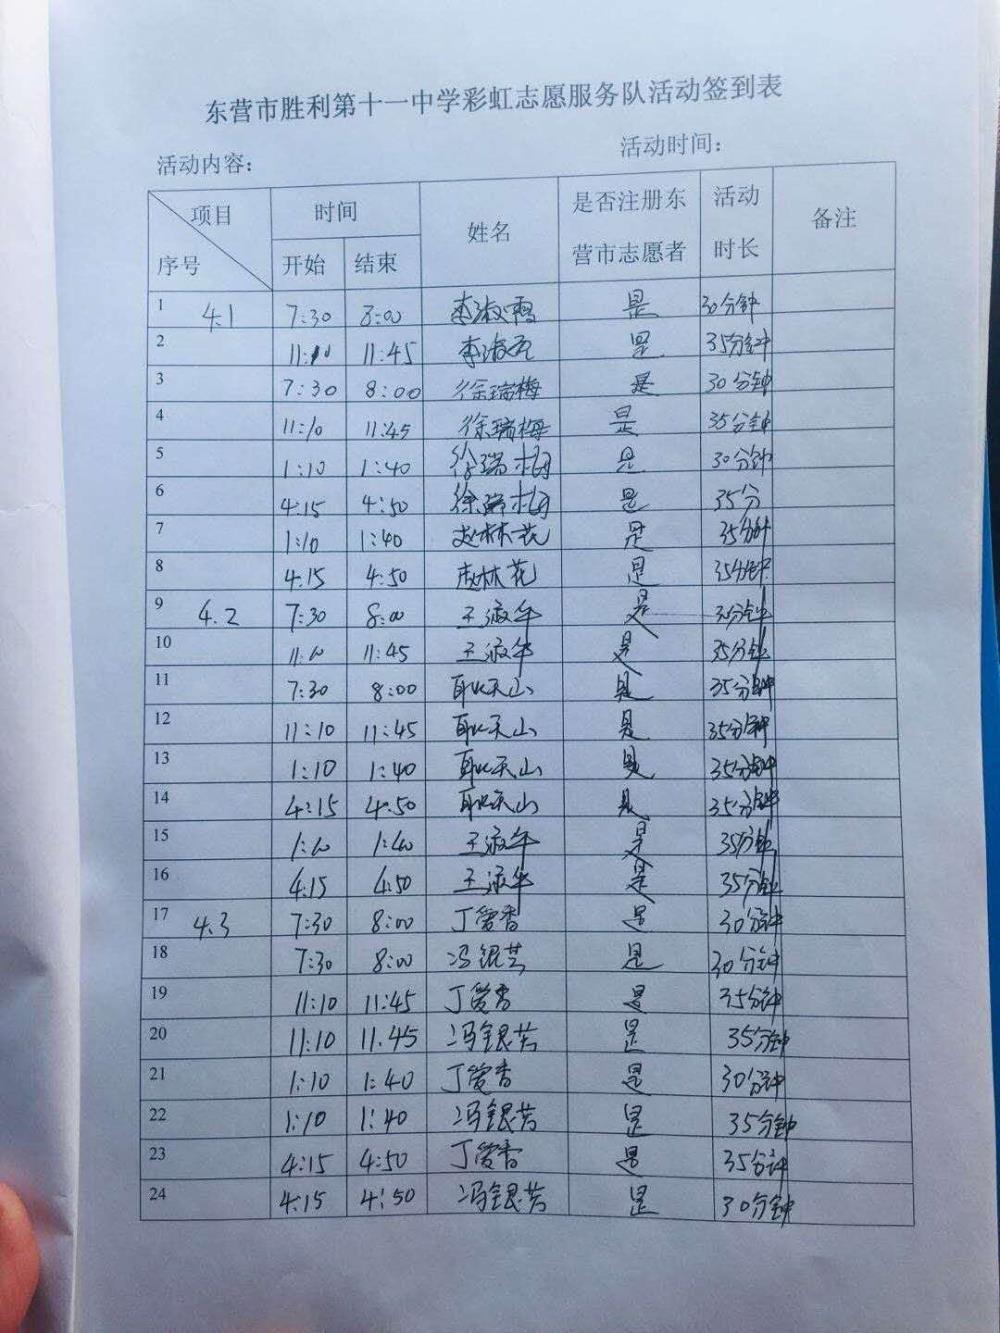 东营市胜利第十一中学彩虹志愿服务队活动签到表
活动内容： 活动时间：
项目 序号 时间 开始 结束 姓名 是否注册东营市志愿者 活动时长 备注
1 4.1 7:30 8:00 李淑霞 是 30分钟
2 11:10 11:45 李淑霞 是 35分钟
3 7:30 8:00 徐瑞梅 是 30分钟
4 11:10 11:45 徐瑞梅 是 35分钟
5 1:10 1:40 徐瑞梅 是 30分钟
6 4:15 4:50 徐瑞梅 是 35分
7 1:10 1:40 赵林花 是 35分钟
8 4:15 4:50 赵林花 是 35分钟
9 4.2 7:30 8:00 王淑华 是 35分钟
10 11:10 11:45 王淑华 是 35分钟
11 7:30 8:00 耿天山 是 35分钟
12 11:10 11:45 耿天山 是 35分钟
13 1:10 1:40 耿天山 是 35分钟
14 4:15 4:50 耿天山 是 35分钟
15 1:10 1:40 王淑华 是 35分钟
16 4:15 4:50 王淑华 是 35分钟
17 4.3 7:30 8:00 丁爱香 是 30分钟
18 7:30 8:00 冯银芳 是 30分钟
19 11:10 11:45 丁爱香 是 35分钟
20 11:10 11.45 冯银芳 是 35分钟
21 1:10 1:40 丁爱香 是 30分钟
22 1:10 1:40 冯银芳 是 35分钟
23 4:15 4:50 丁爱香 是 35分钟
24 4:15 4:50 冯银芳 是 30分钟